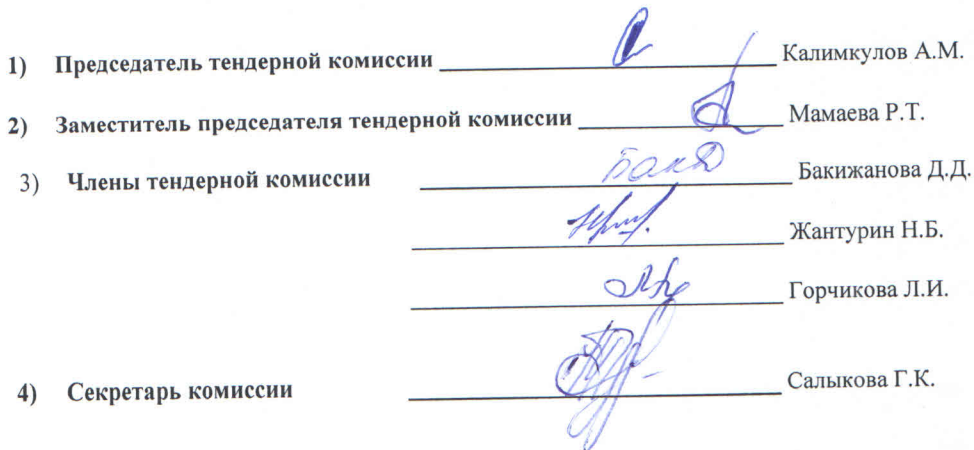 1) Председатель тендерной комиссии Калимкулов А.М.
2) Заместитель председателя тендерной комиссии Мамаева Р.Т.
3) Члены тендерной комиссии БакД Бакижанова Д.Д.
Жантурин Н.Б.
Горчикова Л.И.
4) Секретарь комиссии Салыкова Г.К.